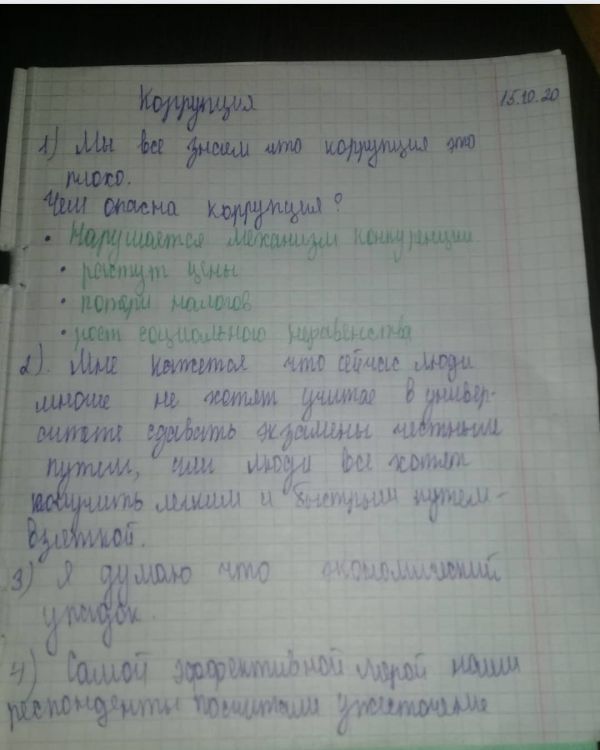 Коррупция 15.10.20
1) Мы все знаем что коррупция это
плохо.
Чем опасна коррупция?
• Нарушается механизм конкуренции
• растут цены
• потери налогов
• рост социального неравенства
2). Мне кажется что сейчас люди
не хотят в универ-
ситете сдавать экзамены честным
путем, или люди все хотят
получить легким и быстрым путем -
взяткой.
3) Я думаю что экономический
упадок.
4) Самой эффективной мерой наши
респонденты посчитали ужесточение